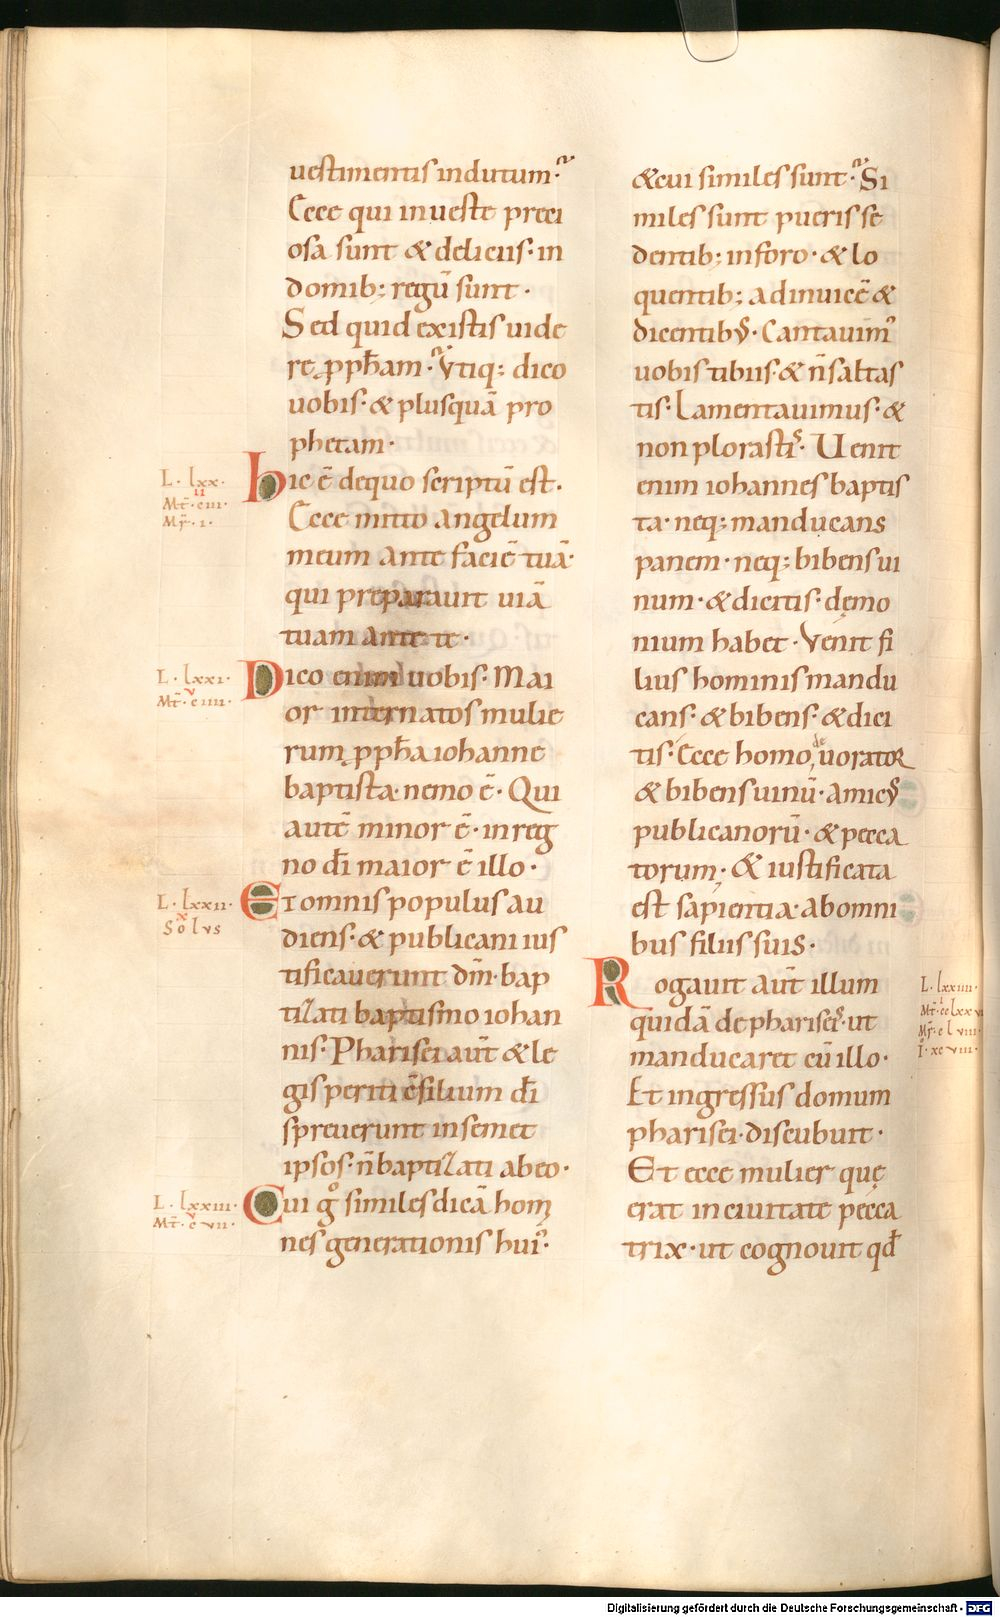 uestimentis indutum·
Ecce qui inueste preci
osa sunt & deliciis· in
domib; regū sunt·
Sed quid existis uide
re pph̄am· Vtiq; dico
uobis· & plusquā pro
phetam·
L· lxx·
II
Mt̄· ciii·
Mr̄· i·
hic ē dequo scriptū est·
Ecce mitto angelum
meum ante faciē tuā·
qui preparauit uiā
tuam ante te·
L· lxxi·
v
Mt̄· ciiii·
Dico enim uobis· Mai
or internatos mulie
rum pph̄a iohanne
baptista· nemo ē· Qui
autē minor ē· inreg
no dī maior ē illo·
L· lxxii·
x
Solus
Et omnis populus au
diens· & publicani ius
tificauerunt dm̄· bap
tizati baptismo iohan
nis· Pharisei aūt & le
gisperiti c̄silium dī
spreuerunt insemet
ipsos· n̄ baptizati abeo·
L· lxxiii·
v
Mt̄· c vii·
Cui gͦ similes dicā homi
nes generationis hui᾽·
& cui similes sunt· Si
miles sunt pueris se
dentib; inforo· & lo
quentib; adinuicē &
dicentibꝰ· Cantauimꝰ
uobis tibiis· & n̄ saltas
tis· Lamentauimus· &
non plorastiˢ· Uenit
enim iohannes baptis
ta· neq; manducans
panem· neq; bibens ui
num· & dicitis· dęmo
nium habet· Venit fi
lius hominis mandu
cans· & bibens· & dici
tis· Ecce homo deuorator
& bibens uinū· amicꝰ
publicanorū· & pecca
torum· & iustificata
est sapientia· abomni
bus filiis suis·
Rogauit aūt illum
quidā de phariseiˢ· ut
manducaret cū illo·
Et ingressus domum
pharisei· discubuit·
Et ecce mulier quę
erat inciuitate pecca
trix· ut cognouit qđ
L· lxxiiii·
i
Mr̄· c l viii·
I· xc viii·
Digitalisierung gefördert durch die Deutsche Forschungsgemeinschaft - DFG